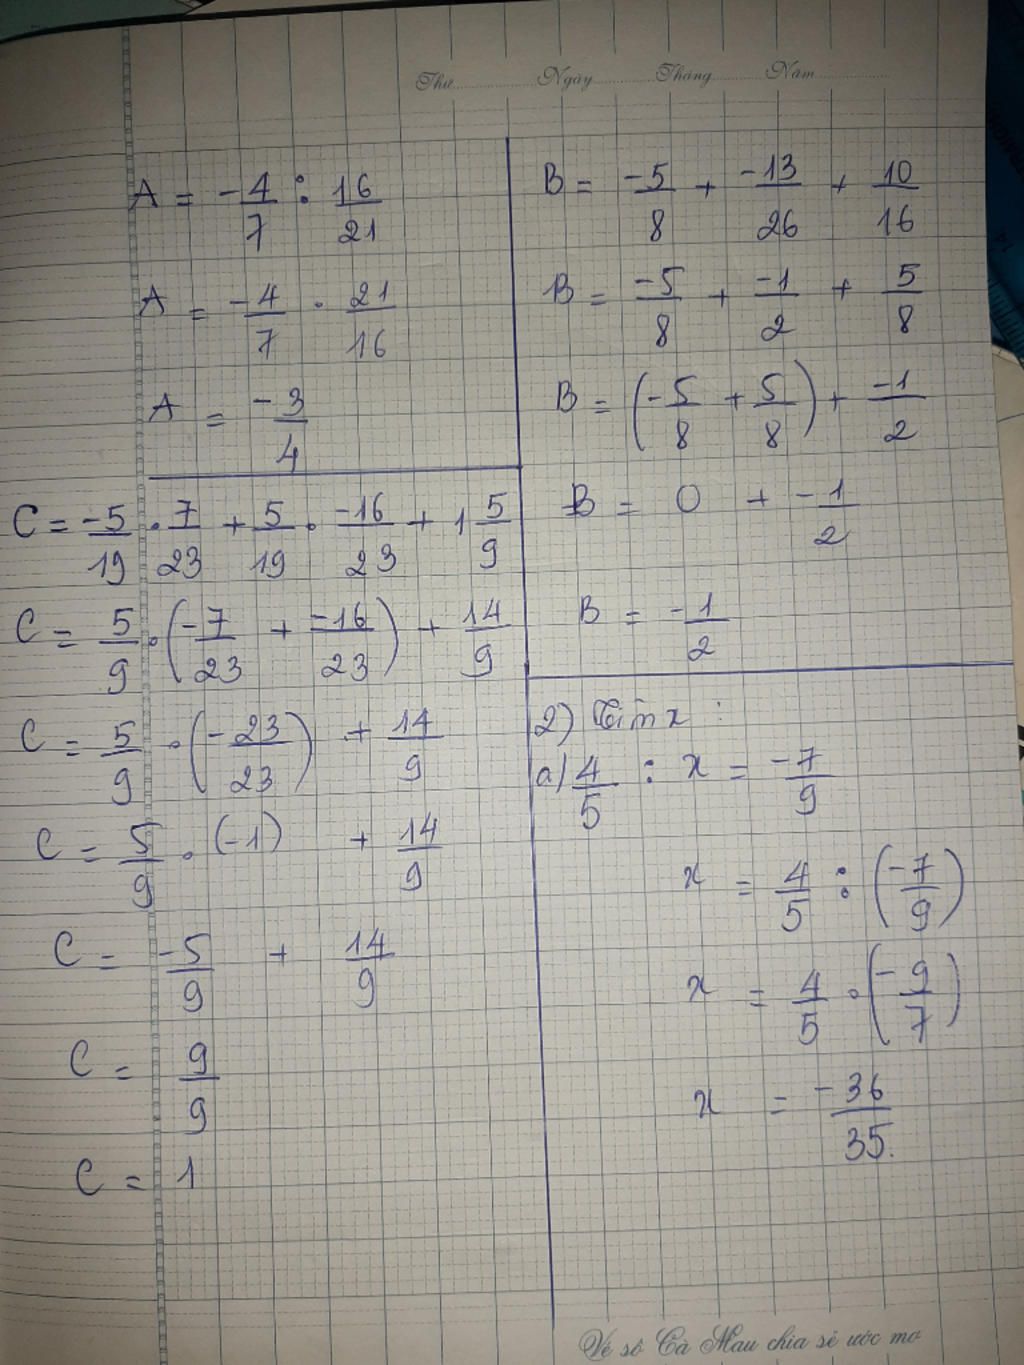 Thứ Ngày Tháng Năm
A = -4/7 : 16/21
A = -4/7 . 21/16
A = -3/4
B = -5/8 + -13/26 + 10/16
B = -5/8 + -1/2 + 5/8
B = (-5/8 + 5/8) + -1/2
B = 0 + -1/2
B = -1/2
C = -5/19 . 7/23 + 5/19 . -16/23 + 1 5/9
C = 5/9 . (-7/23 + -16/23) + 14/9
C = 5/9 . (-23/23) + 14/9
C = 5/9 . (-1) + 14/9
C = -5/9 + 14/9
C = 9/9
C = 1
2) Tìm x :
a) 4/5 : x = -7/9
x = 4/5 : (-7/9)
x = 4/5 . (-9/7)
x = -36/35.
Vé số Cà Mau chia sẻ ước mơ